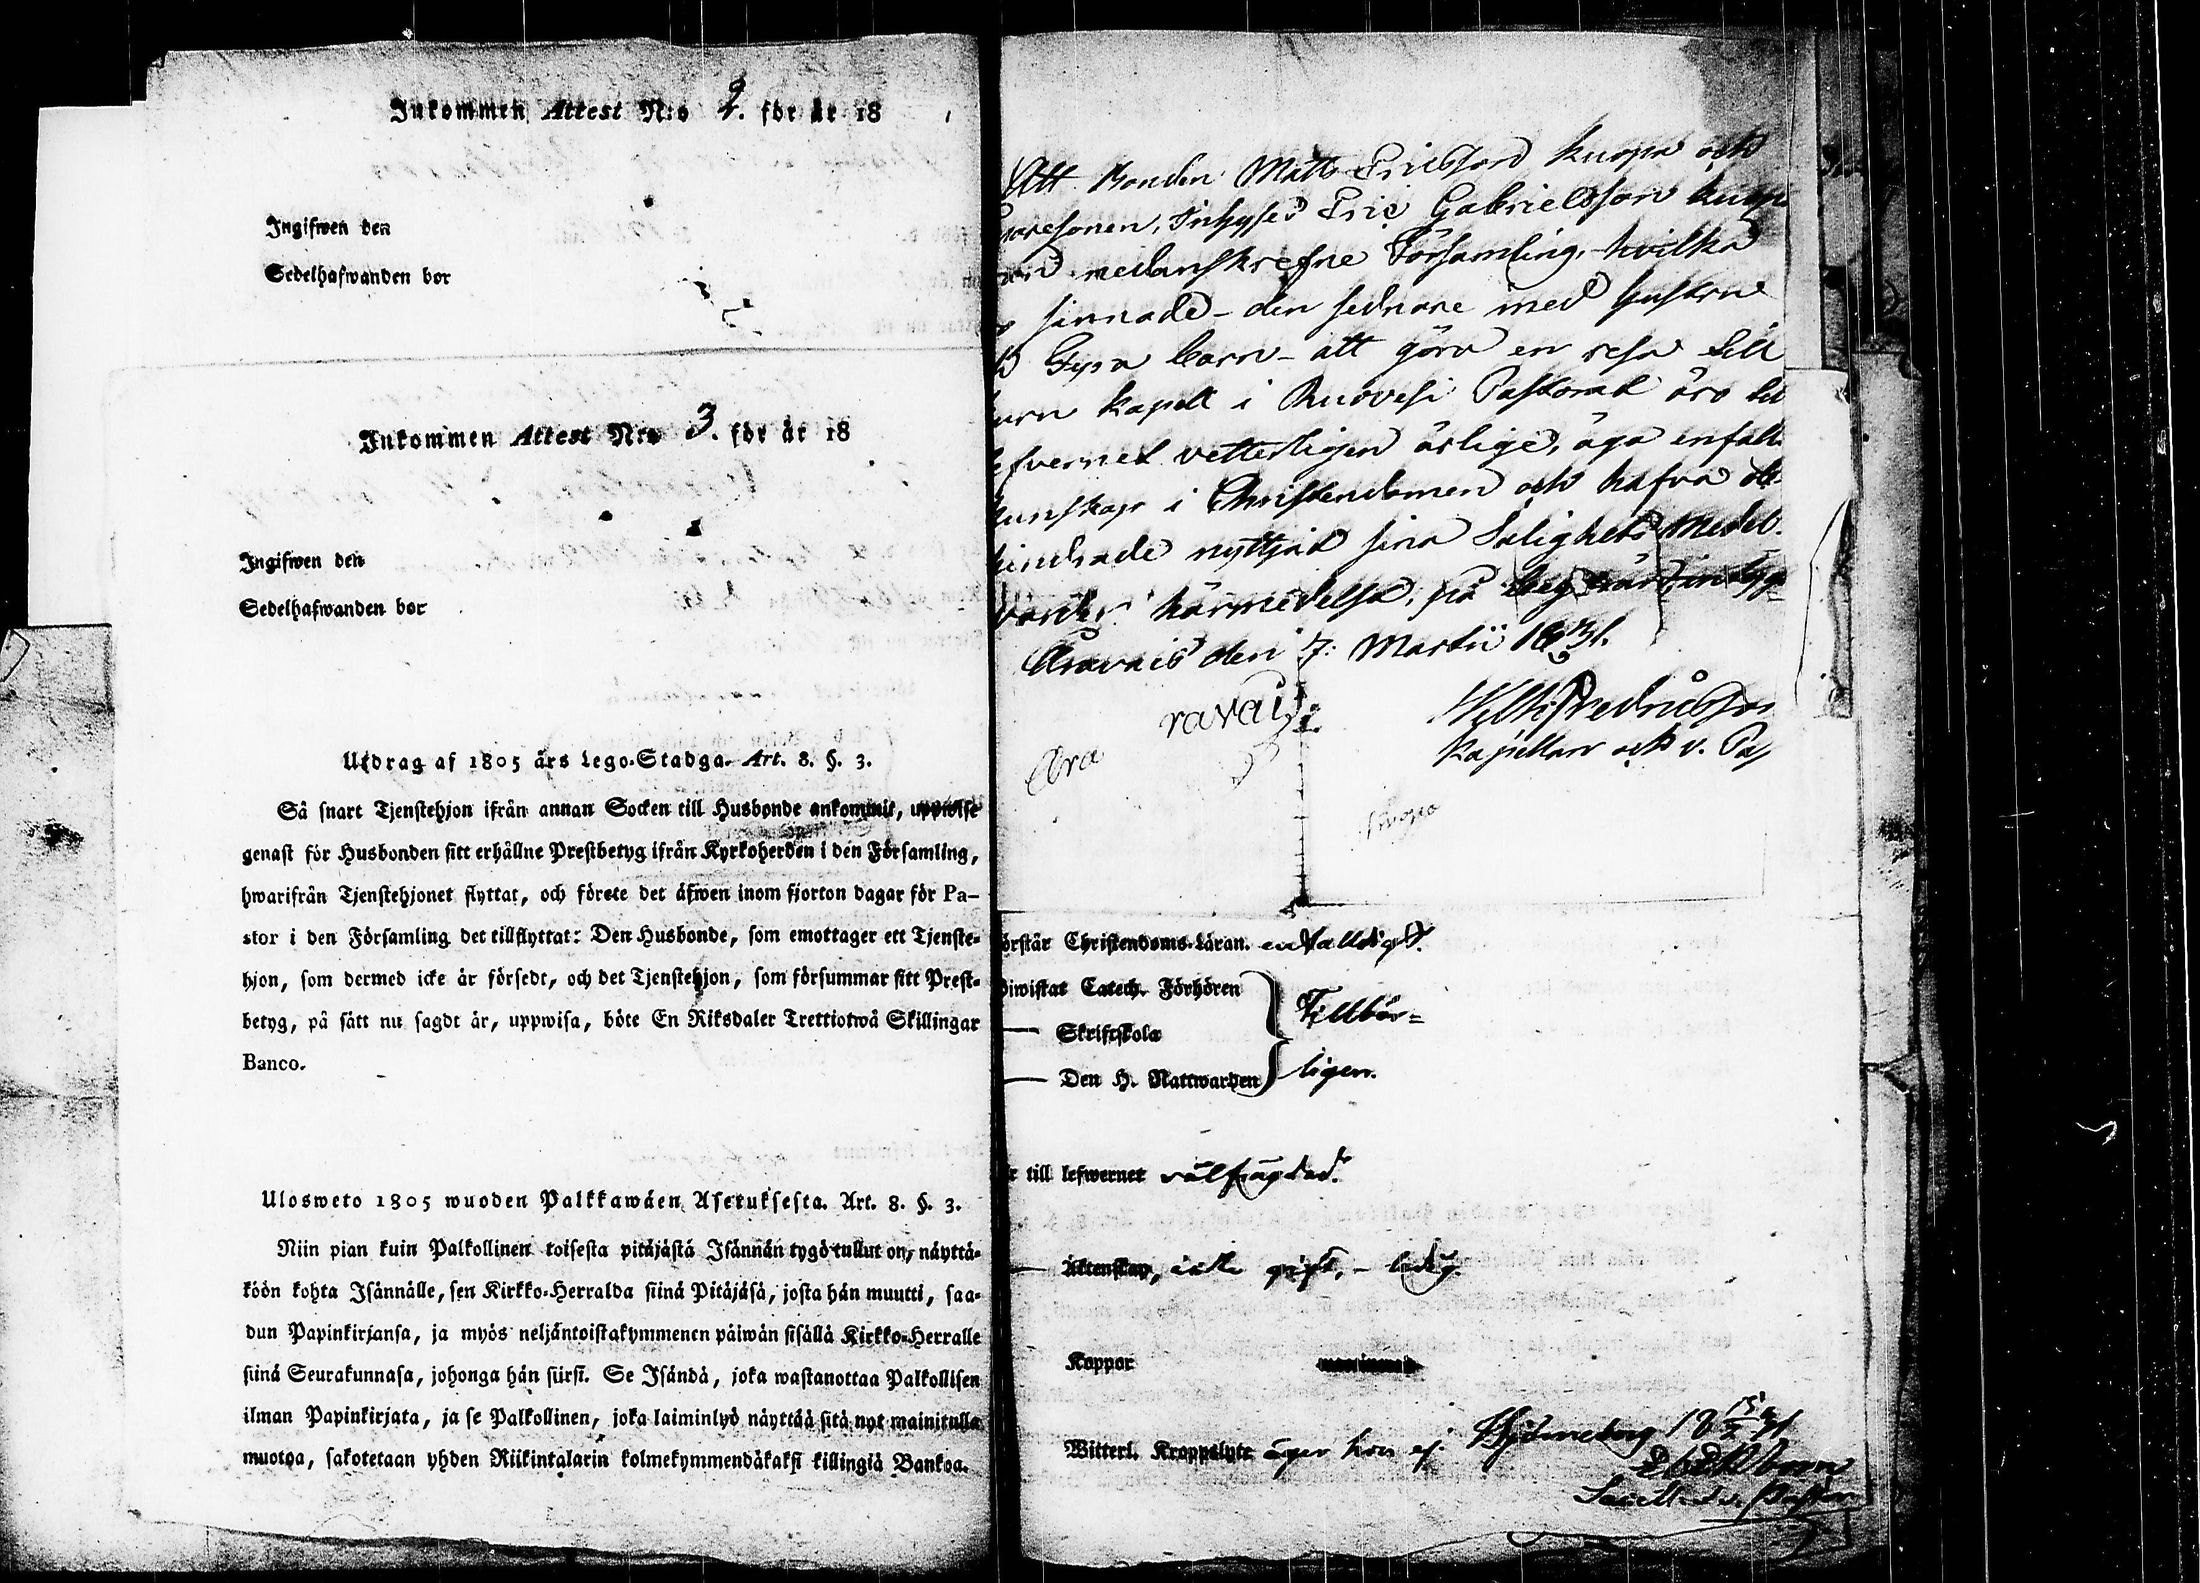 Inkommen Attest N:o 2. för år 18
Ingifwen den
Sedelhafwanden bor
Inkommen Attest N:o 3. för år 18
Ingifwen den
Sedelhafwanden bor
Utdrag af 1805 års Lego-Stadga. Art. 8. §. 3.
Så snart Tjenstehjon ifrån annan Socken till Husbonde ankommit, uppwise
genast för Husbonden sitt erhållne Prestbetyg ifrån Kyrkoherden i den Församling,
hwarifrån Tjenstehjonet flyttat, och förete det äfwen inom fjorton dagar för Pa-
stor i den Församling det tillflyttat: Den Husbonde, som emottager ett Tjenste-
hjon, som dermed icke är försedt, och det Tjenstehjon, som försummar sitt Prest-
betyg, på sätt nu sagdt är, uppwisa, böte En Riksdaler Trettiotwå Skillingar
Banco.
Ulosweto 1805 wuoden Palkkawäen Asetuksesta. Art. 8. §. 3.
Niin pian kuin Palkollinen toisesta pitäjästä Isännän tygö tullut on, näyttä-
köön kohta Isännälle, sen Kirkko-Herralda siinä Pitäjäsä, josta hän muutti, saa-
dun Papinkirjansa, ja myös neljäntoistakymmenen päiwän sisällä Kirkko-Herralle
siinä Seurakunnasa, johonga hän siirsi. Se Isändä, joka wastanottaa Palkollisen
ilman Papinkirjata, ja se Palkollinen, joka laiminlyö näyttää sitä nyt mainitulla
muotoa, sakotetaan yhden Riikintalarin kolmekymmendäkaksi killingiä Bankoa.
Att Bonden Matts Ericsson Kuopa och
Inhyses Eric Gabrielsson
nedanskrefne Församling, hvilka
sinnade - den sednare med hustru
Fyra barn - att göra en resa till
kapell i Ruovesi Pastorat äro till
efvernet vetterligen ärlige, äga enfalld
kunskap i Christendomen och hafva
hindrade nyttjat sina Salighets Medel.
varder härmedelst, på begäran, intyg-
Oravais den 7: Martii 1831.
ravais
Ora
Kapellan och v. Pas
örstår Christendoms-Läran. enfalldigt.
biwistat Catech. Förhören
— Skriftskola
— Den H. Nattwarden
Tillbör-
ligen.
r till lefwernet välfrägdad.
— Äktenskap, icke gift, - ledig.
Koppor
Witterl. Kroppslyte äger hon ej. Björneborg